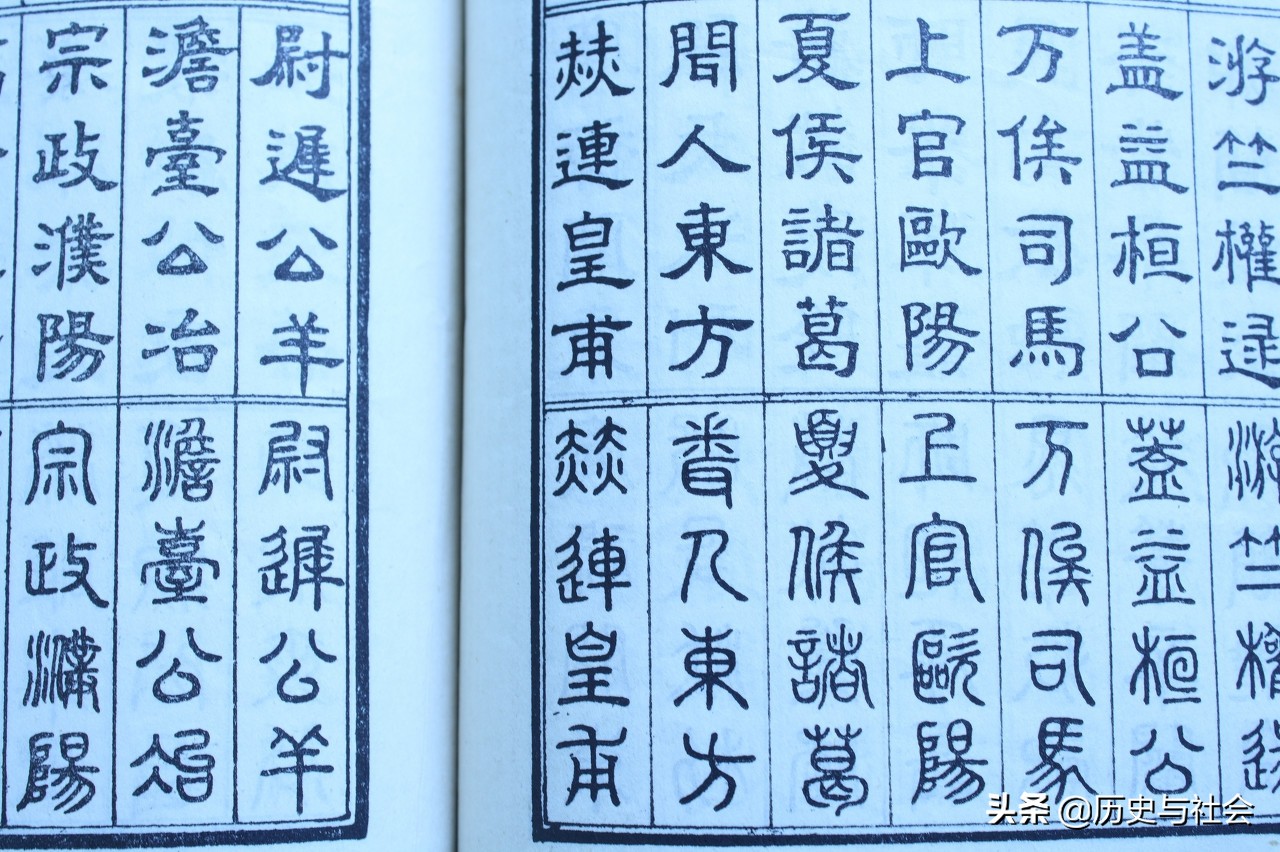 游竺權逯
盖益桓公
万俟司馬
上官歐陽
夏侯諸葛
聞人東方
赫連皇甫
游竺權逯
蓋益桓公
万俟司馬
上官歐陽
夏侯諸葛
聞人東方
赫連皇甫
尉遲公羊
澹臺公冶
宗政濮陽
尉遲公羊
澹臺公冶
宗政濮陽
头条 @历史与社会